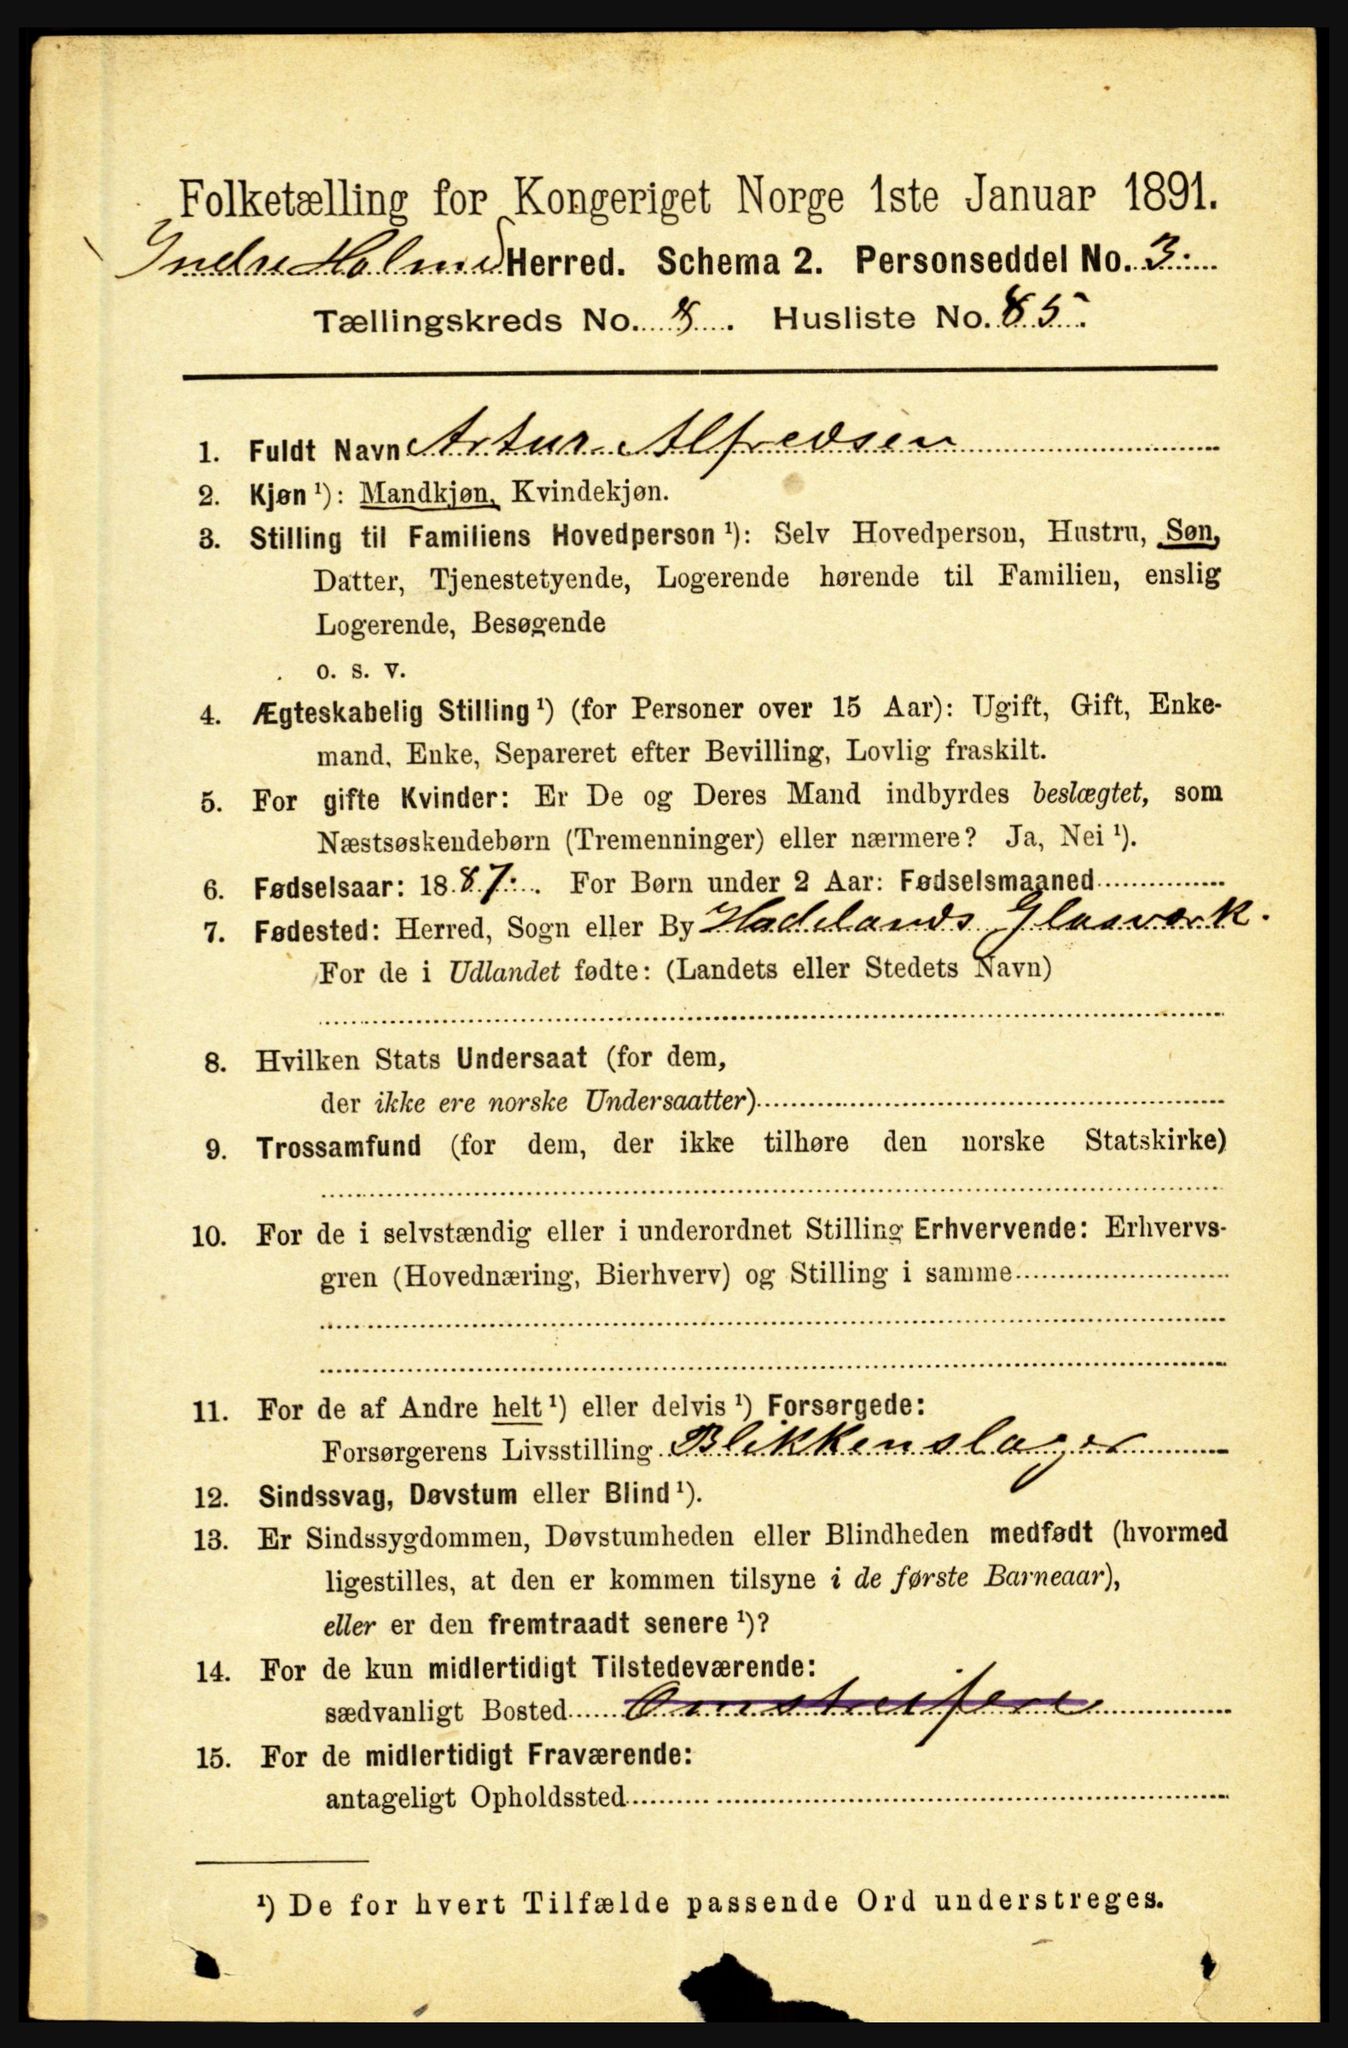 Folketælling for Kongeriget Norge 1ste Januar 1891.
Indre Holmed Herred. Schema 2. Personseddel No. 3.
Tællingskreds No. 8. Husliste No. 85.
1. Fuldt Navn Artur Alfredsen
2. Kjøn ¹): Mandkjøn, Kvindekjøn.
3. Stilling til Familiens Hovedperson ¹): Selv Hovedperson, Hustru, Søn,
Datter, Tjenestetyende, Logerende hørende til Familien, enslig
Logerende, Besøgende
o. s. v.
4. Ægteskabelig Stilling ¹) (for Personer over 15 Aar): Ugift, Gift, Enke-
mand, Enke, Separeret efter Bevilling, Lovlig fraskilt.
5. For gifte Kvinder: Er De og Deres Mand indbyrdes beslægtet, som
Næstsøskendebørn (Tremenninger) eller nærmere? Ja, Nei ¹).
6. Fødselsaar: 1887. For Børn under 2 Aar: Fødselsmaaned
7. Fødested: Herred, Sogn eller By Hadelands Glasværk.
For de i Udlandet fødte: (Landets eller Stedets Navn)
8. Hvilken Stats Undersaat (for dem,
der ikke ere norske Undersaatter)
9. Trossamfund (for dem, der ikke tilhøre den norske Statskirke)
10. For de i selvstændig eller i underordnet Stilling Erhvervende: Erhvervs-
gren (Hovednæring, Bierhverv) og Stilling i samme
11. For de af Andre helt ¹) eller delvis ¹) Forsørgede:
Forsørgerens Livsstilling Blikkenslager
12. Sindssvag, Døvstum eller Blind ¹).
13. Er Sindssygdommen, Døvstumheden eller Blindheden medfødt (hvormed
ligestilles, at den er kommen tilsyne i de første Barneaar),
eller er den fremtraadt senere ¹)?
14. For de kun midlertidigt Tilstedeværende:
sædvanligt Bosted Omstreifere
15. For de midlertidigt Fraværende:
antageligt Opholdssted
¹) De for hvert Tilfælde passende Ord understreges.